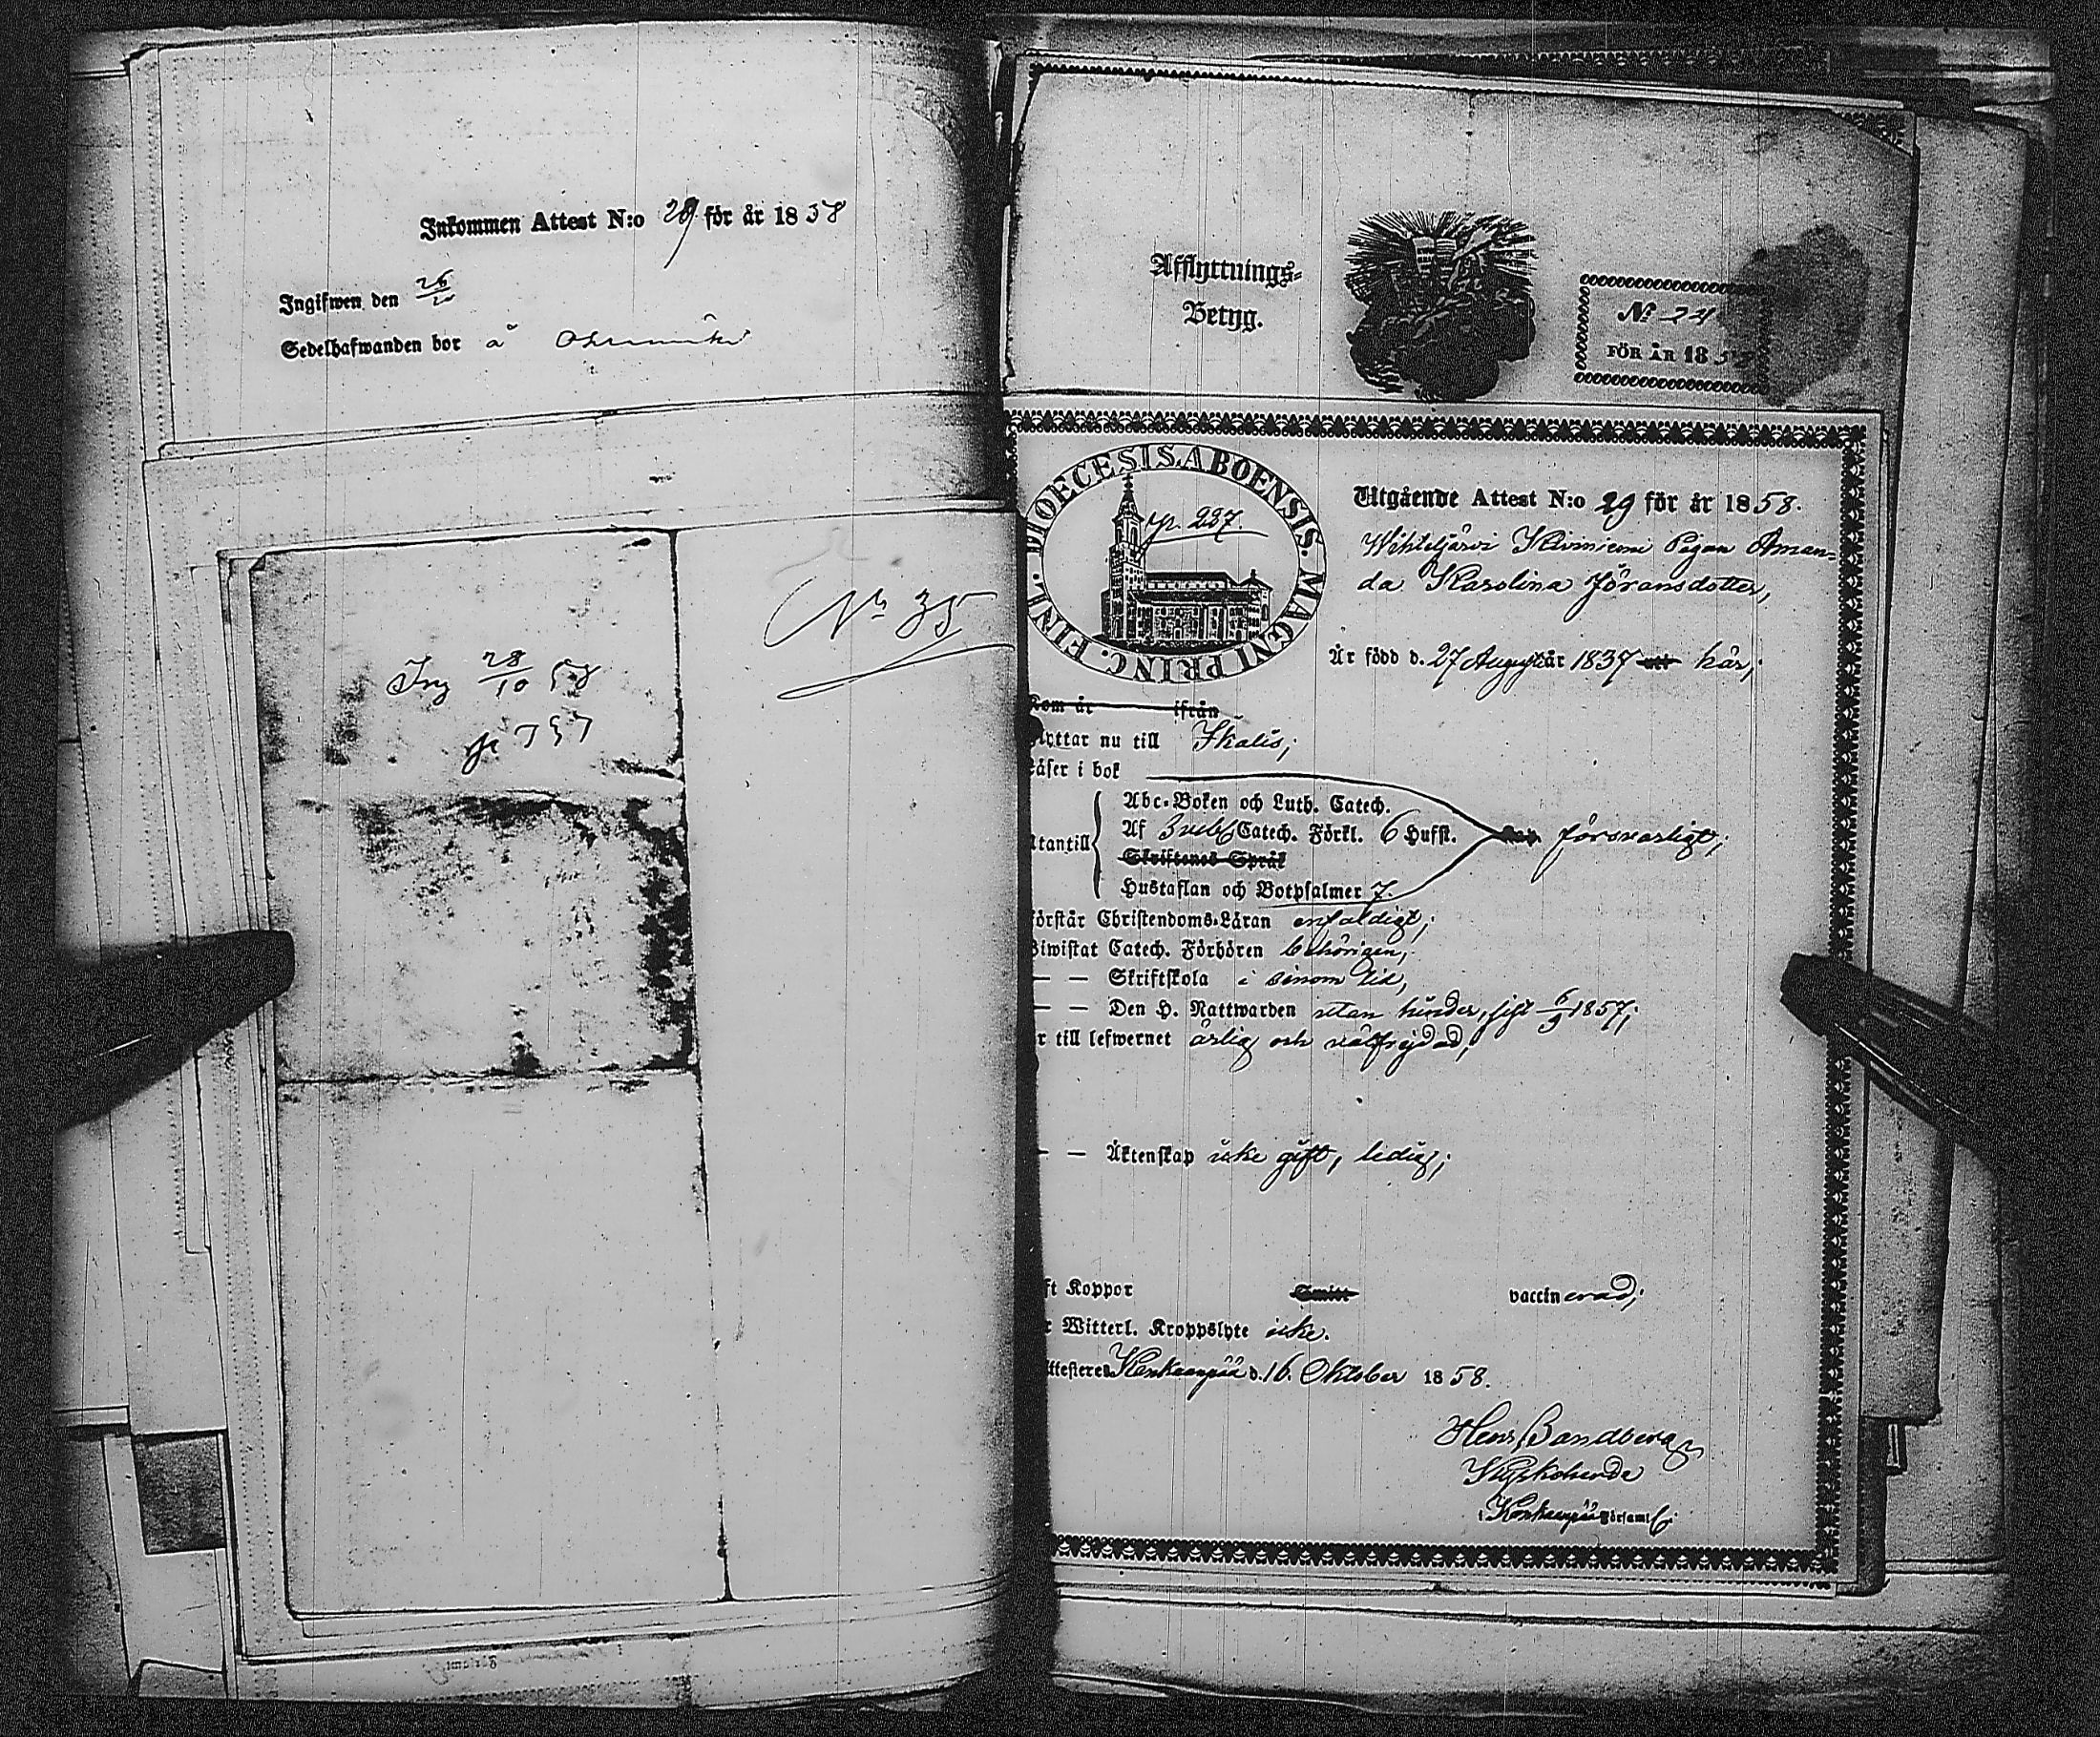 Inkommen Attest N:o 29 för år 1858
Ingifwen den 26/10
Sedelhafwanden bor å
Ing 28/10 58
N:o 35
Afflyttnings-
Betyg.
No 24
FÖR ÅR 185
DIOECESIS ABOENSIS. MAGNI PRINC. FINL.
p. 237.
Utgående Attest N:o 29 för år 1858.
Wihteljärvi Kiviniemi Pigan Aman-
da Karolina Jöransdotter,
Är född d. 27 Augusti år 1837 här;
Kom år ifrån
lyttar nu till Ikalis;
Läser i bok
Abc-Boken och Luth. Catech.
Af Svebel. Catech. Förkl. 6 Hufst. försvarligt;
Utantill
Skriftenes Språk
Hustaflan och Botpsalmer 7.
Förstår Christendoms-Läran enfaldigt;
Biwistat Catech. Förhören behörigen;
— — Skriftskola i sinom tid,
— — Den H. Nattwarden utan hinder, sist 6/9 1857;
r till lefwernet ärlig och välfrejdad,
— — Äktenskap icke gift, ledig;
ft Koppor Smitt vaccinerad;
r Witterl. Kroppslyte icke.
Attesteras Kankaanpää d. 16. Oktober 1858.
Henr. Sandberg
Kankaanpää Församl.